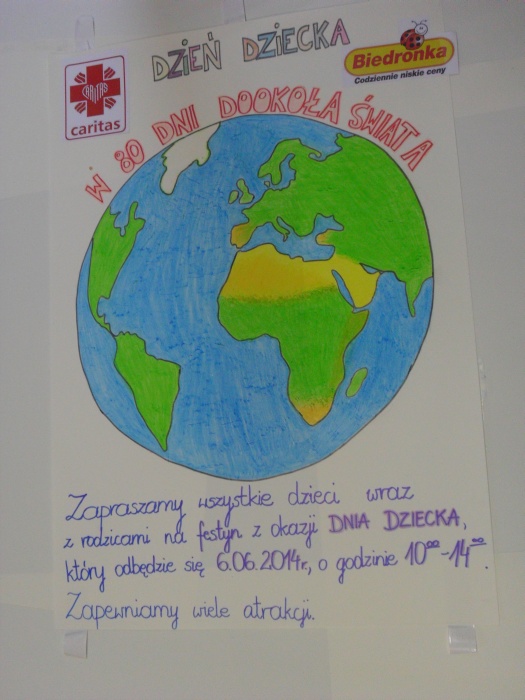 DZIEŃ DZIECKA
CARITAS
caritas
Biedronka
Codziennie niskie ceny
W 80 DNI DOOKOŁA ŚWIATA
Zapraszamy wszystkie dzieci wraz
z rodzicami na festyn z okazji DNIA DZIECKA,
który odbędzie się 6.06.2014r., o godzinie 10⁰⁰-14⁰⁰.
Zapewniamy wiele atrakcji.